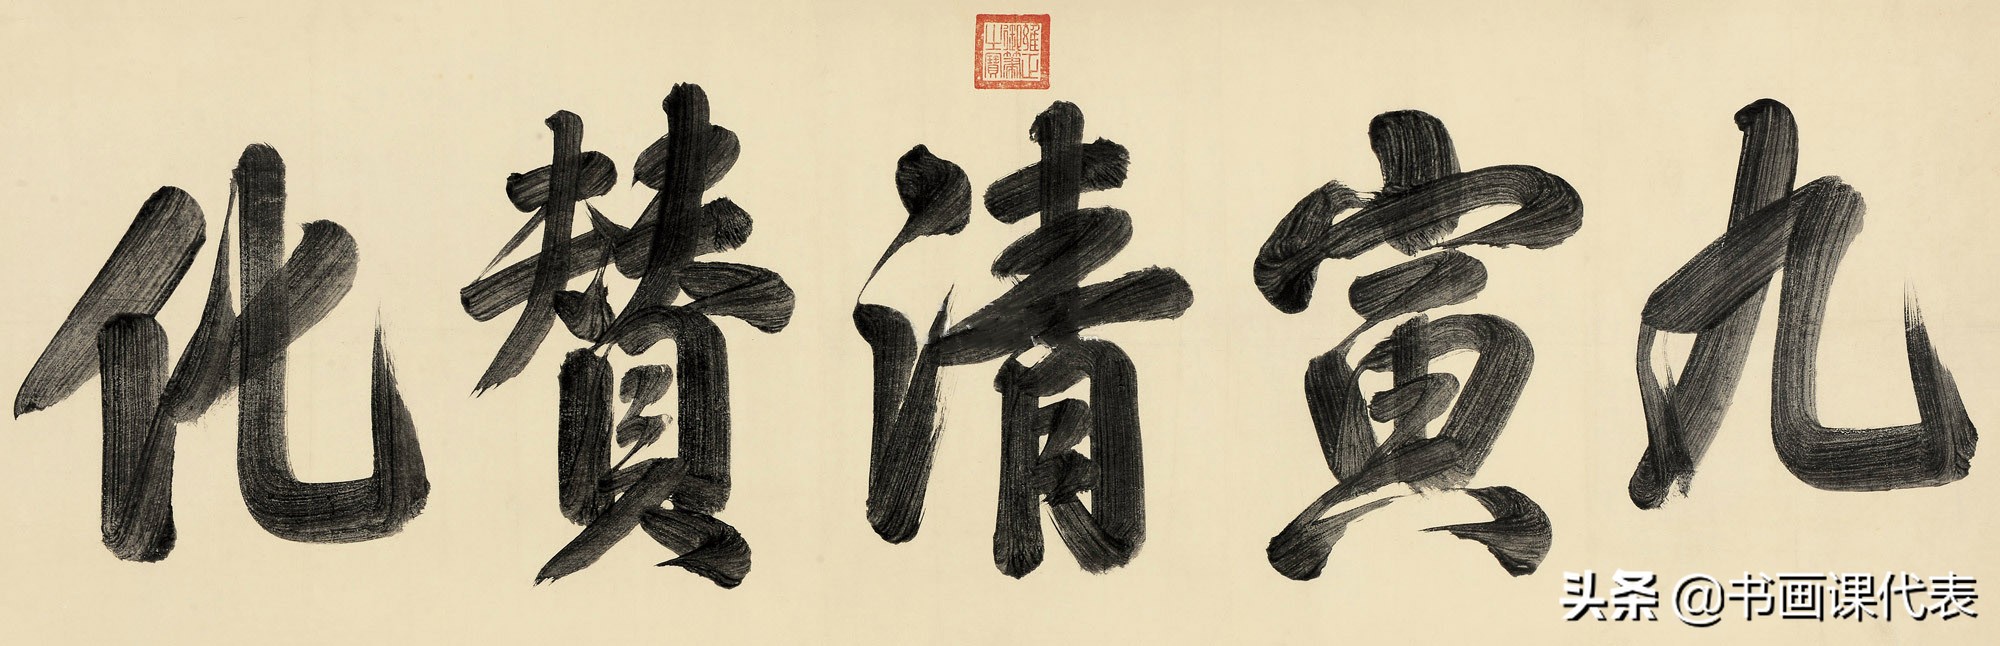 雍正御筆之寶
九寅清賛化
头条 @书画课代表